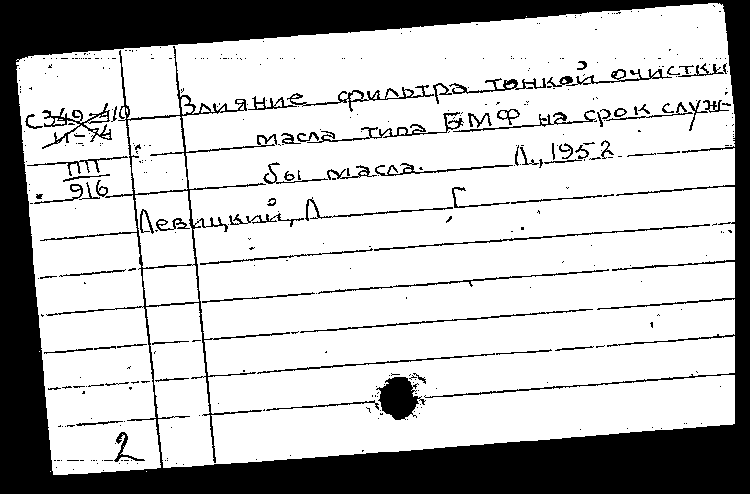 Влияние фильтра тонкой очистки
С349-410
И-74
масла типа БМФ на срок служ-
ПП
916
бы масла. Л., 1952
Левицкий, Л Г
2